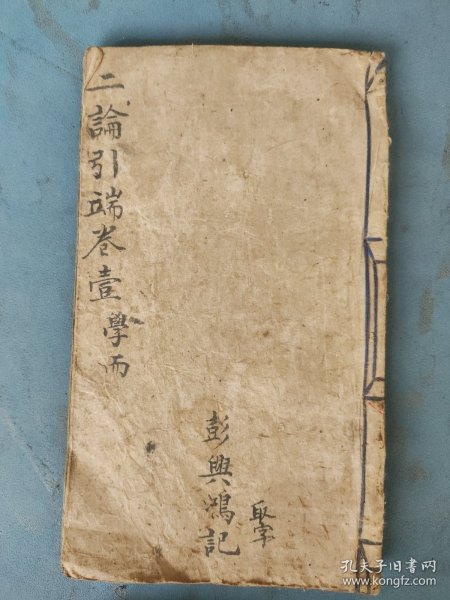 二論引端卷壹 學而
彭興鴻記
孔夫子旧书网
www.kongfz.com